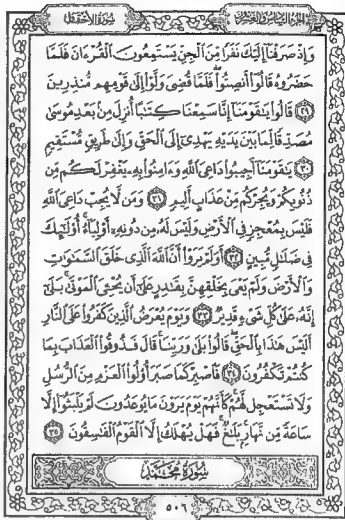 الجزء السادس والعشرون سورة الأحقاف
وَإِذْ صَرَفْنَآ إِلَيْكَ نَفَرًا مِّنَ ٱلْجِنِّ يَسْتَمِعُونَ ٱلْقُرْءَانَ فَلَمَّا
حَضَرُوهُ قَالُوٓا۟ أَنصِتُوا۟ فَلَمَّا قُضِىَ وَلَّوْا۟ إِلَىٰ قَوْمِهِم مُّنذِرِينَ
٢٩ قَالُوا۟ يَٰقَوْمَنَآ إِنَّا سَمِعْنَا كِتَٰبًا أُنزِلَ مِنۢ بَعْدِ مُوسَىٰ
مُصَدِّقًا لِّمَا بَيْنَ يَدَيْهِ يَهْدِىٓ إِلَى ٱلْحَقِّ وَإِلَىٰ طَرِيقٍ مُّسْتَقِيمٍ
٣٠ يَٰقَوْمَنَآ أَجِيبُوا۟ دَاعِىَ ٱللَّهِ وَءَامِنُوا۟ بِهِۦ يَغْفِرْ لَكُم مِّن
ذُنُوبِكُمْ وَيُجِرْكُم مِّنْ عَذَابٍ أَلِيمٍ ٣١ وَمَن لَّا يُجِبْ دَاعِىَ ٱللَّهِ
فَلَيْسَ بِمُعْجِزٍ فِى ٱلْأَرْضِ وَلَيْسَ لَهُۥ مِن دُونِهِۦٓ أَوْلِيَآءُ أُو۟لَٰٓئِكَ
فِى ضَلَٰلٍ مُّبِينٍ ٣٢ أَوَلَمْ يَرَوْا۟ أَنَّ ٱللَّهَ ٱلَّذِى خَلَقَ ٱلسَّمَٰوَٰتِ
وَٱلْأَرْضَ وَلَمْ يَعْىَ بِخَلْقِهِنَّ بِقَٰدِرٍ عَلَىٰٓ أَن يُحْـِۧىَ ٱلْمَوْتَىٰ بَلَىٰٓ
إِنَّهُۥ عَلَىٰ كُلِّ شَىْءٍ قَدِيرٌ ٣٣ وَيَوْمَ يُعْرَضُ ٱلَّذِينَ كَفَرُوا۟ عَلَى ٱلنَّارِ
أَلَيْسَ هَٰذَا بِٱلْحَقِّ قَالُوا۟ بَلَىٰ وَرَبِّنَا قَالَ فَذُوقُوا۟ ٱلْعَذَابَ بِمَا
كُنتُمْ تَكْفُرُونَ ٣٤ فَٱصْبِرْ كَمَا صَبَرَ أُو۟لُوا۟ ٱلْعَزْمِ مِنَ ٱلرُّسُلِ
وَلَا تَسْتَعْجِل لَّهُمْ كَأَنَّهُمْ يَوْمَ يَرَوْنَ مَا يُوعَدُونَ لَمْ يَلْبَثُوٓا۟ إِلَّا
سَاعَةً مِّن نَّهَارٍۭ بَلَٰغٌ فَهَلْ يُهْلَكُ إِلَّا ٱلْقَوْمُ ٱلْفَٰسِقُونَ ٣٥
سورة محمد
٥٠٦